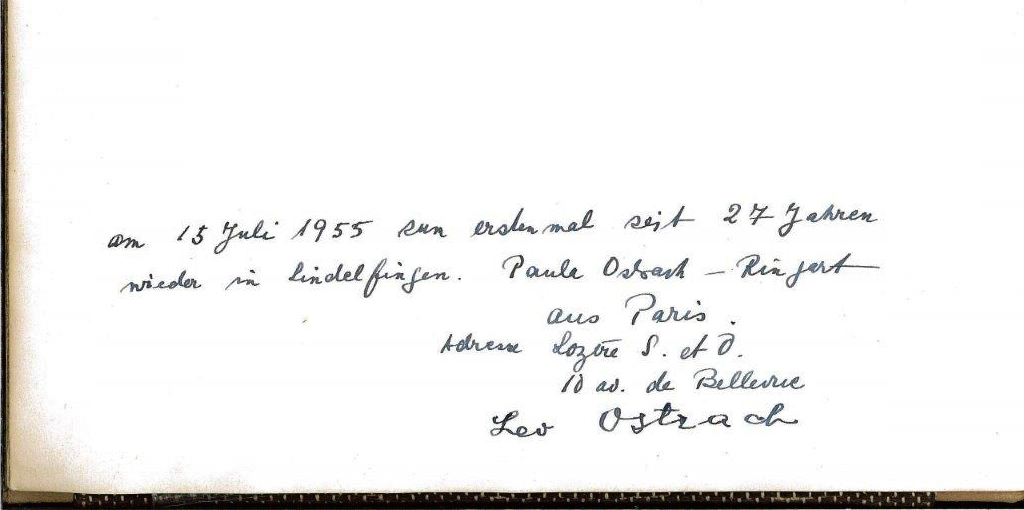 am 15 Juli 1955 zum erstenmal seit 27 Jahren
wieder in Sindelfingen. Paula Ostrach – Ringart
aus Paris.
Adresse Lozère S. et O.
10 av. de Bellevue
Leo Ostrach